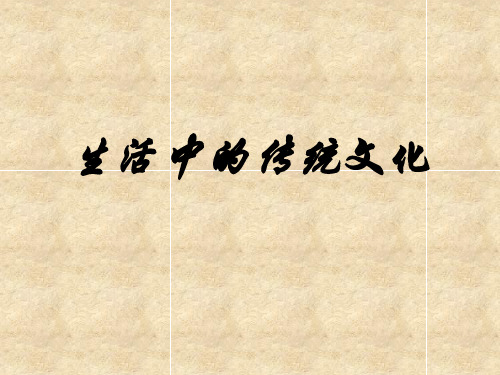 生活中的传统文化